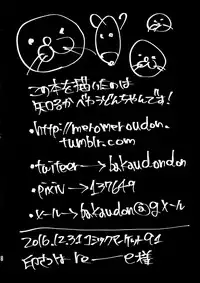 この本を描いたのは
矢口るかべやうどんちゃんです!
・http://meromeroudon.
tumblr.com
・twitter→bakaudondon
・pixiv→137649
・メール→bakaudon@gメール
2016.12.31 コミックマーケット91
印刷は re———e様